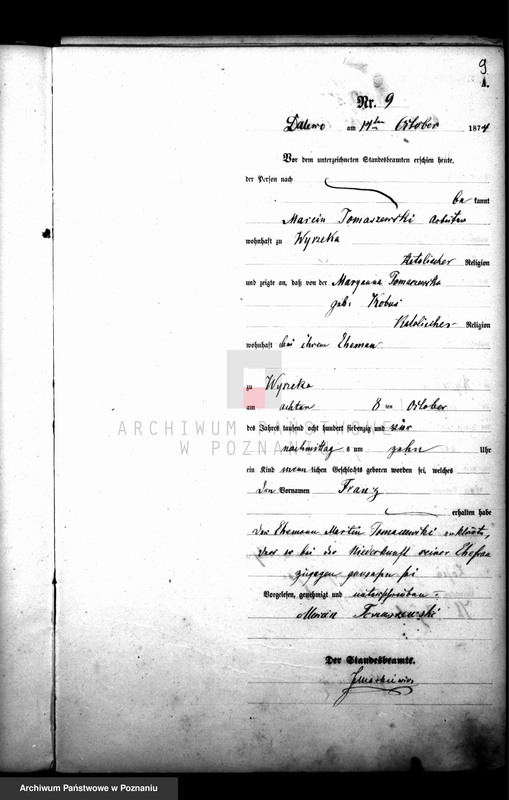 9
A.
Nr. 9
Dalewo am 14ten October 1874
Vor dem unterzeichneten Standesbeamten erschien heute,
der Person nach
be kannt
Marcin Tomaszewski Arbeiter
wohnhaft zu Wyrzeka
katolischer Religion
und zeigte an, daß von der Maryanna Tomaszewska
geb: Kobus
Katolischer Religion
wohnhaft bei ihrem Eheman
zu Wyrzeka
am achten 8 ten October
des Jahres tausend acht hundert siebenzig und vier
nachmittag s um zehn Uhr
ein Kind menn lichen Geschlechts geboren worden sei, welches
den Vornamen Franz
erhalten habe
Der Ehemann Martin Tomaszewski erklärte,
dass er bei der Niederkunft seiner Ehefrau
zugegen gewesen sei
Vorgelesen, genehmigt und unterschrieben
Marcin Tomaszewski
Der Standesbeamte.
ARCHIWUM PAŃSTWOWE
W POZNANIU
Archiwum Państwowe w Poznaniu